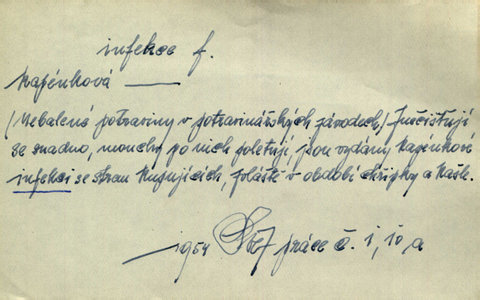 infekce f.
kapénková ——
/Nebalené potraviny v potravinářských závodech/ Znečišťují
se snadno, mouchy po nich poletují, jsou vydány kapénkové
infekci se stran kupujících, zvláště v období chřipky a kašle.
1954 práce č. 1, 10, a